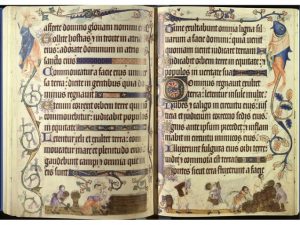 afferte domino gloriam nomini
Tollite hostias et in troite in atria
eius: adorate dominum in atrio
sancto eius
Commoueatur a facie eius
sa terra: dicite in gentibus quia do
minus regnauit
Etenim correxit orbem terre qui non
commouebitur: iudicabit populos
in equitate
Letentur celi et exultet terra: com
moueatur mare et plenitudo eius:
gaudebunt campi et omnia que in
eis sunt
Tunc exultabunt omnia ligna sil
uarum a facie domini: quia uenit
quoniam uenit iudicare terram
Iudicabit orbem terre in equitate: et
populos in ueritate sua
Dominus regnauit exultet
terra: letentur insule multe
Nubes et caligo in circuitu eius: iusti
cia et iudicium correctio sedis eius
Ignis ante ipsum precedet: et inflam
mabit in circuitu inimicos eius
Illuxerunt fulgura eius orbi terre: ui
dit et commota est terra
Montes sicut cera fluxerunt a facie